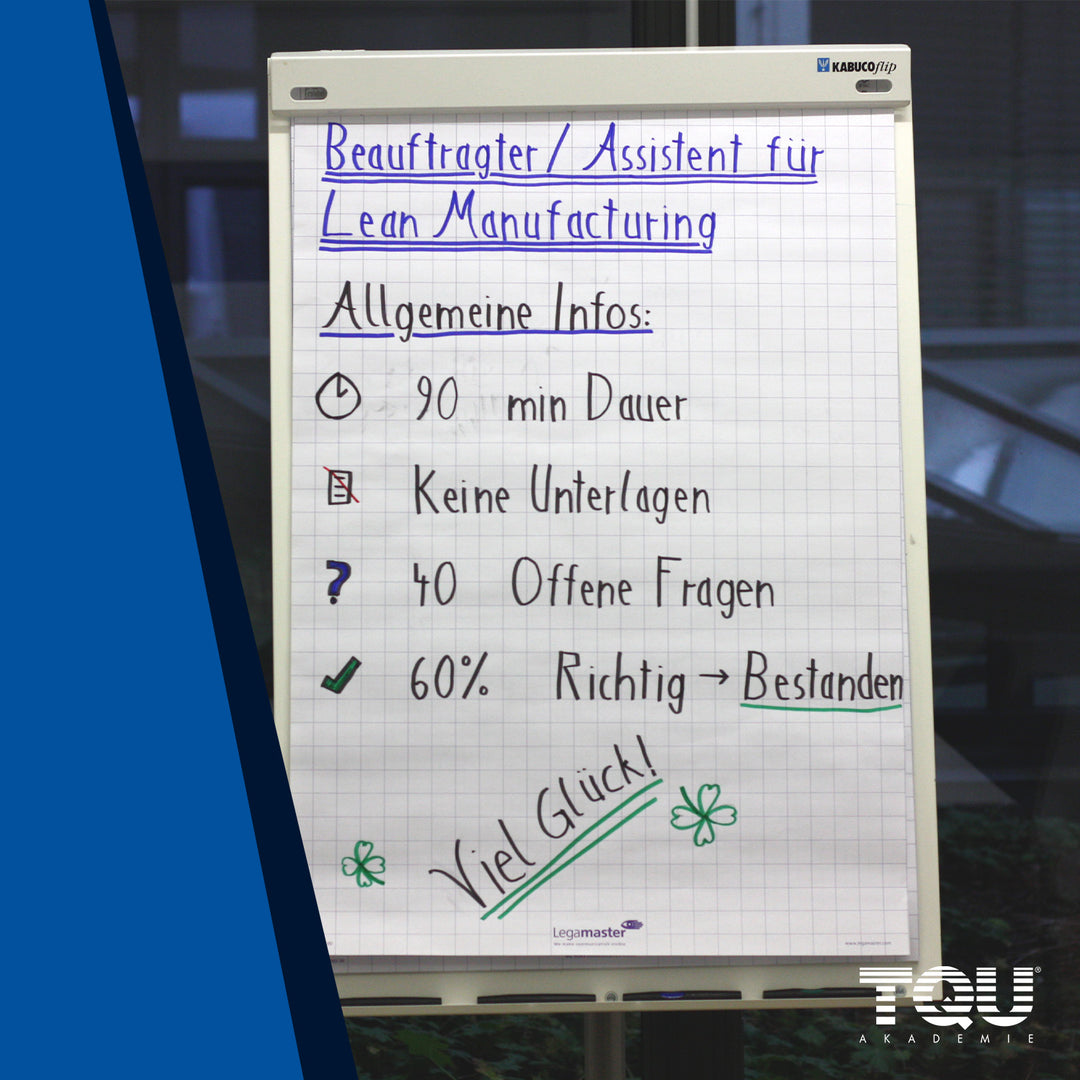 KABUCOflip
Beauftragter / Assistent für
Lean Manufacturing
Allgemeine Infos:
90 min Dauer
Keine Unterlagen
? 40 Offene Fragen
60% Richtig → Bestanden
Viel Glück!
Legamaster
www.legamaster.com
TQU®
AKADEMIE